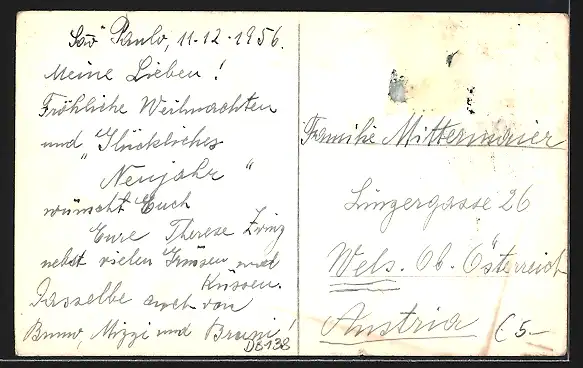 São Paulo, 11-12-1956.
Meine Lieben!
Fröhliche Weihnachten
und "Glückliches
Neujahr"
wünscht Euch
Eure Therese Zwinz
nebst vielen Grüssen und
Küssen.
Dasselbe auch von
Bruno, Mizzi und Bruni!
Familie Mittermaier
Linzergasse 26
Wels. Ob. Österreich
Austria
(5-
D8138